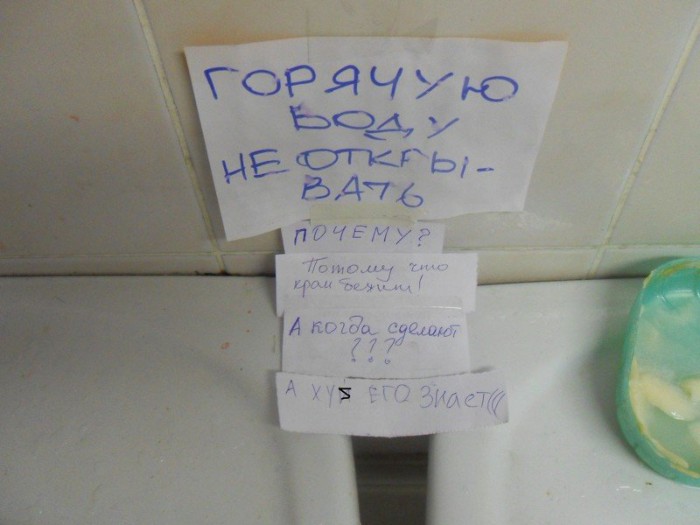 ГОРЯЧУЮ
ВОДУ
НЕ ОТКРЫ-
ВАТЬ
ПОЧЕМУ?
Потому что
кран бежит!
А когда сделают
???
А ХУЙ ЕГО ЗНАЕТ(((